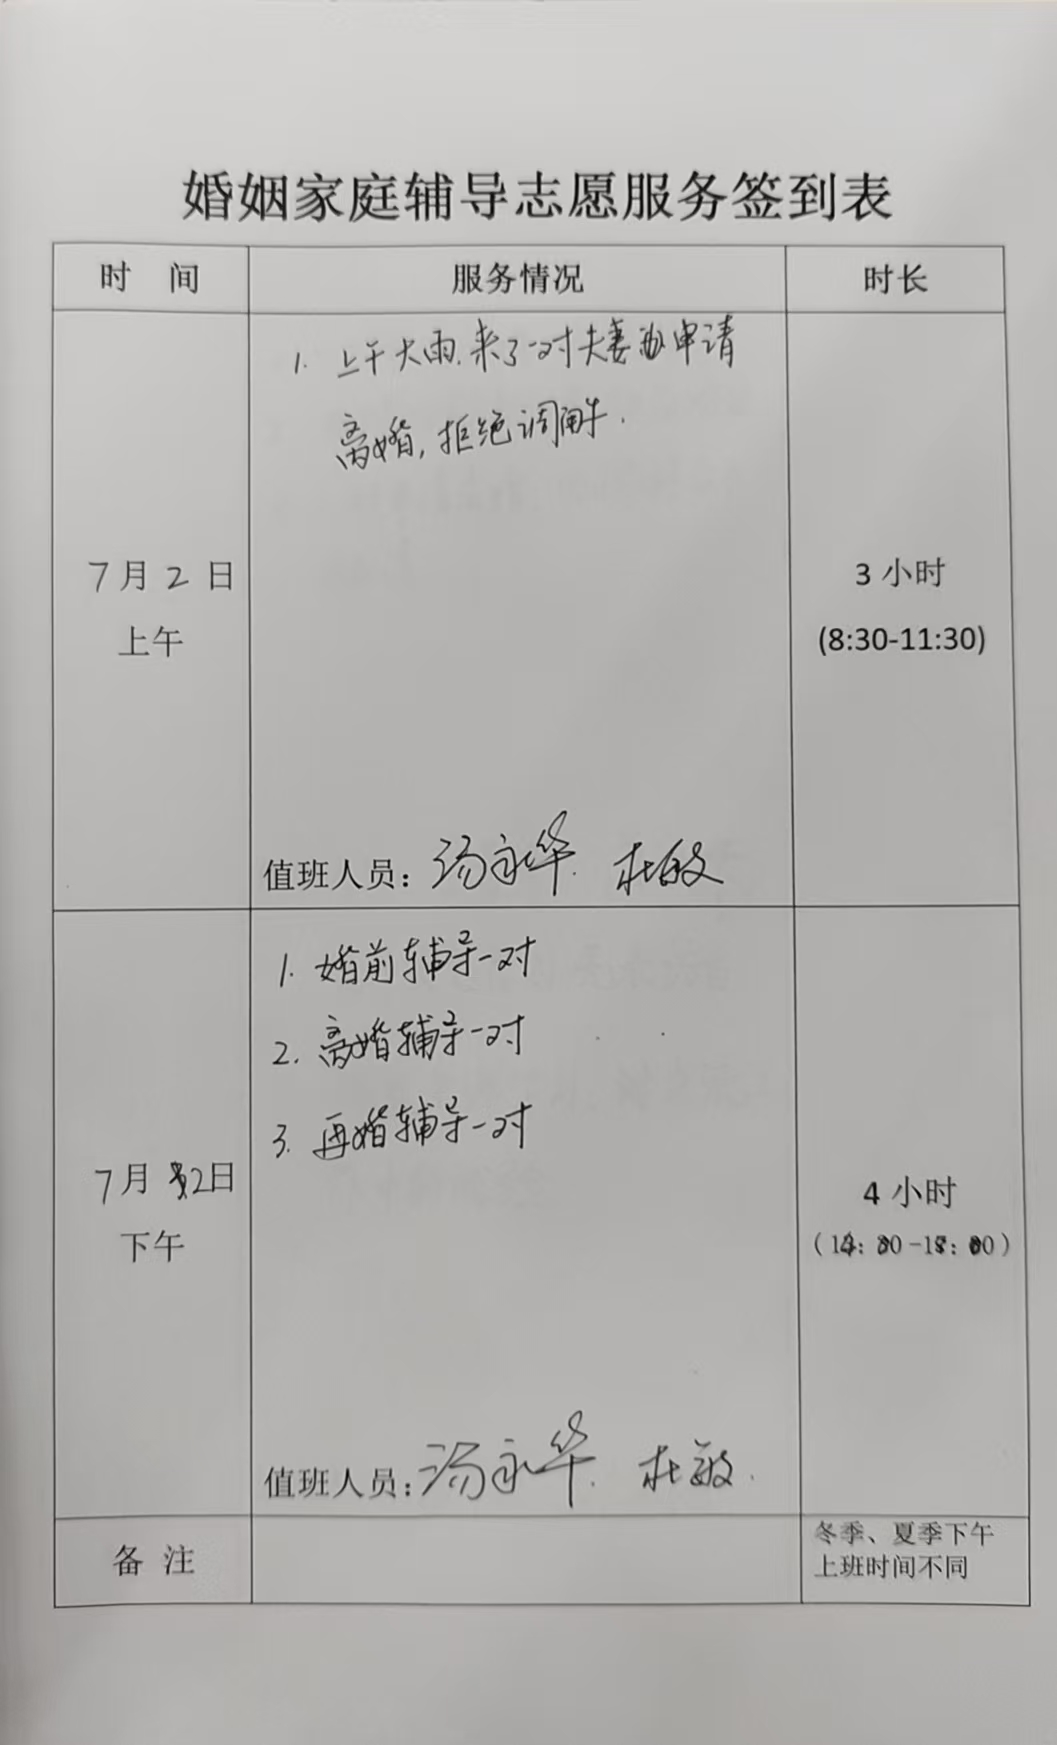 婚姻家庭辅导志愿服务签到表
时 间 服务情况 时长
1. 上午大雨.来了一对夫妻办申请
离婚,拒绝调解.
7月2日
上午
3小时
(8:30-11:30)
值班人员:汤永华. 杜敏
1. 婚前辅导一对
2. 离婚辅导一对
3. 再婚辅导一对
7月2日
下午
4小时
值班人员:汤永华. 杜敏.
备 注
冬季、夏季下午
上班时间不同